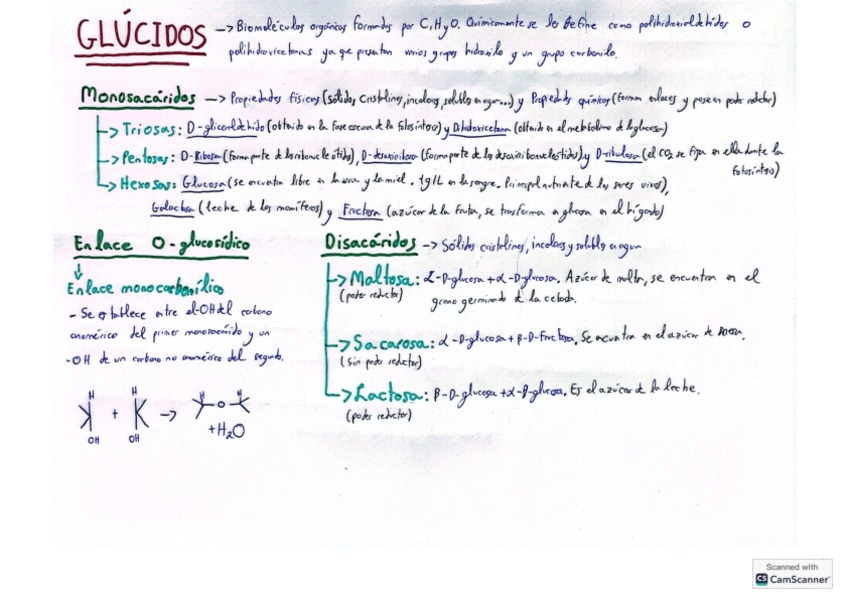 GLÚCIDOS -> Biomoléculas orgánicas formadas por C, H y O. Químicamente se lo define como polihidroxialdehídos o
polihidroxicetonas ya que presentan varios grupos hidroxilo y un grupo carbonilo.
Monosacáridos -> Propiedades físicas (sólidos, cristalinos, incoloros, solubles en agua...) y Propiedades químicas (forman enlaces y poseen poder reductor)
-> Triosas: D-gliceraldehído (obtenido en la fase oscura de la fotosíntesis) y Dihidroxicetona (obtenido en el metabolismo de la glucosa)
-> Pentosas: D-Ribosa (forma parte de los ribonucleótidos), D-desoxirribosa (forma parte de los desoxirribonucleótidos) y D-ribulosa (el CO2 se fija en ella durante la
fotosíntesis)
-> Hexosas: Glucosa (se encuentra libre en la uva y la miel. 1g/L en la sangre. Principal nutriente de los seres vivos),
Galactosa (leche de los mamíferos) y Fructosa (azúcar de la fruta, se transforma en glucosa en el hígado)
Enlace O-glucosídico
Enlace monocarbonílico
- Se establece entre el -OH del carbono
anomérico del primer monosacárido y un
-OH de un carbono no anomérico del segundo.
H H
+ -> O
OH OH + H2O
Disacáridos -> Sólidos cristalinos, incoloros y solubles en agua
-> Maltosa: α-D-glucosa + α-D-glucosa. Azúcar de malta, se encuentra en el
(poder reductor) grano germinado de la cebada.
-> Sacarosa: α-D-glucosa + β-D-fructosa. Se encuentra en el azúcar de
(sin poder reductor)
-> Lactosa: β-D-glucosa + α-β-glucosa. Es el azúcar de la leche.
(poder reductor)
Scanned with
CS CamScanner